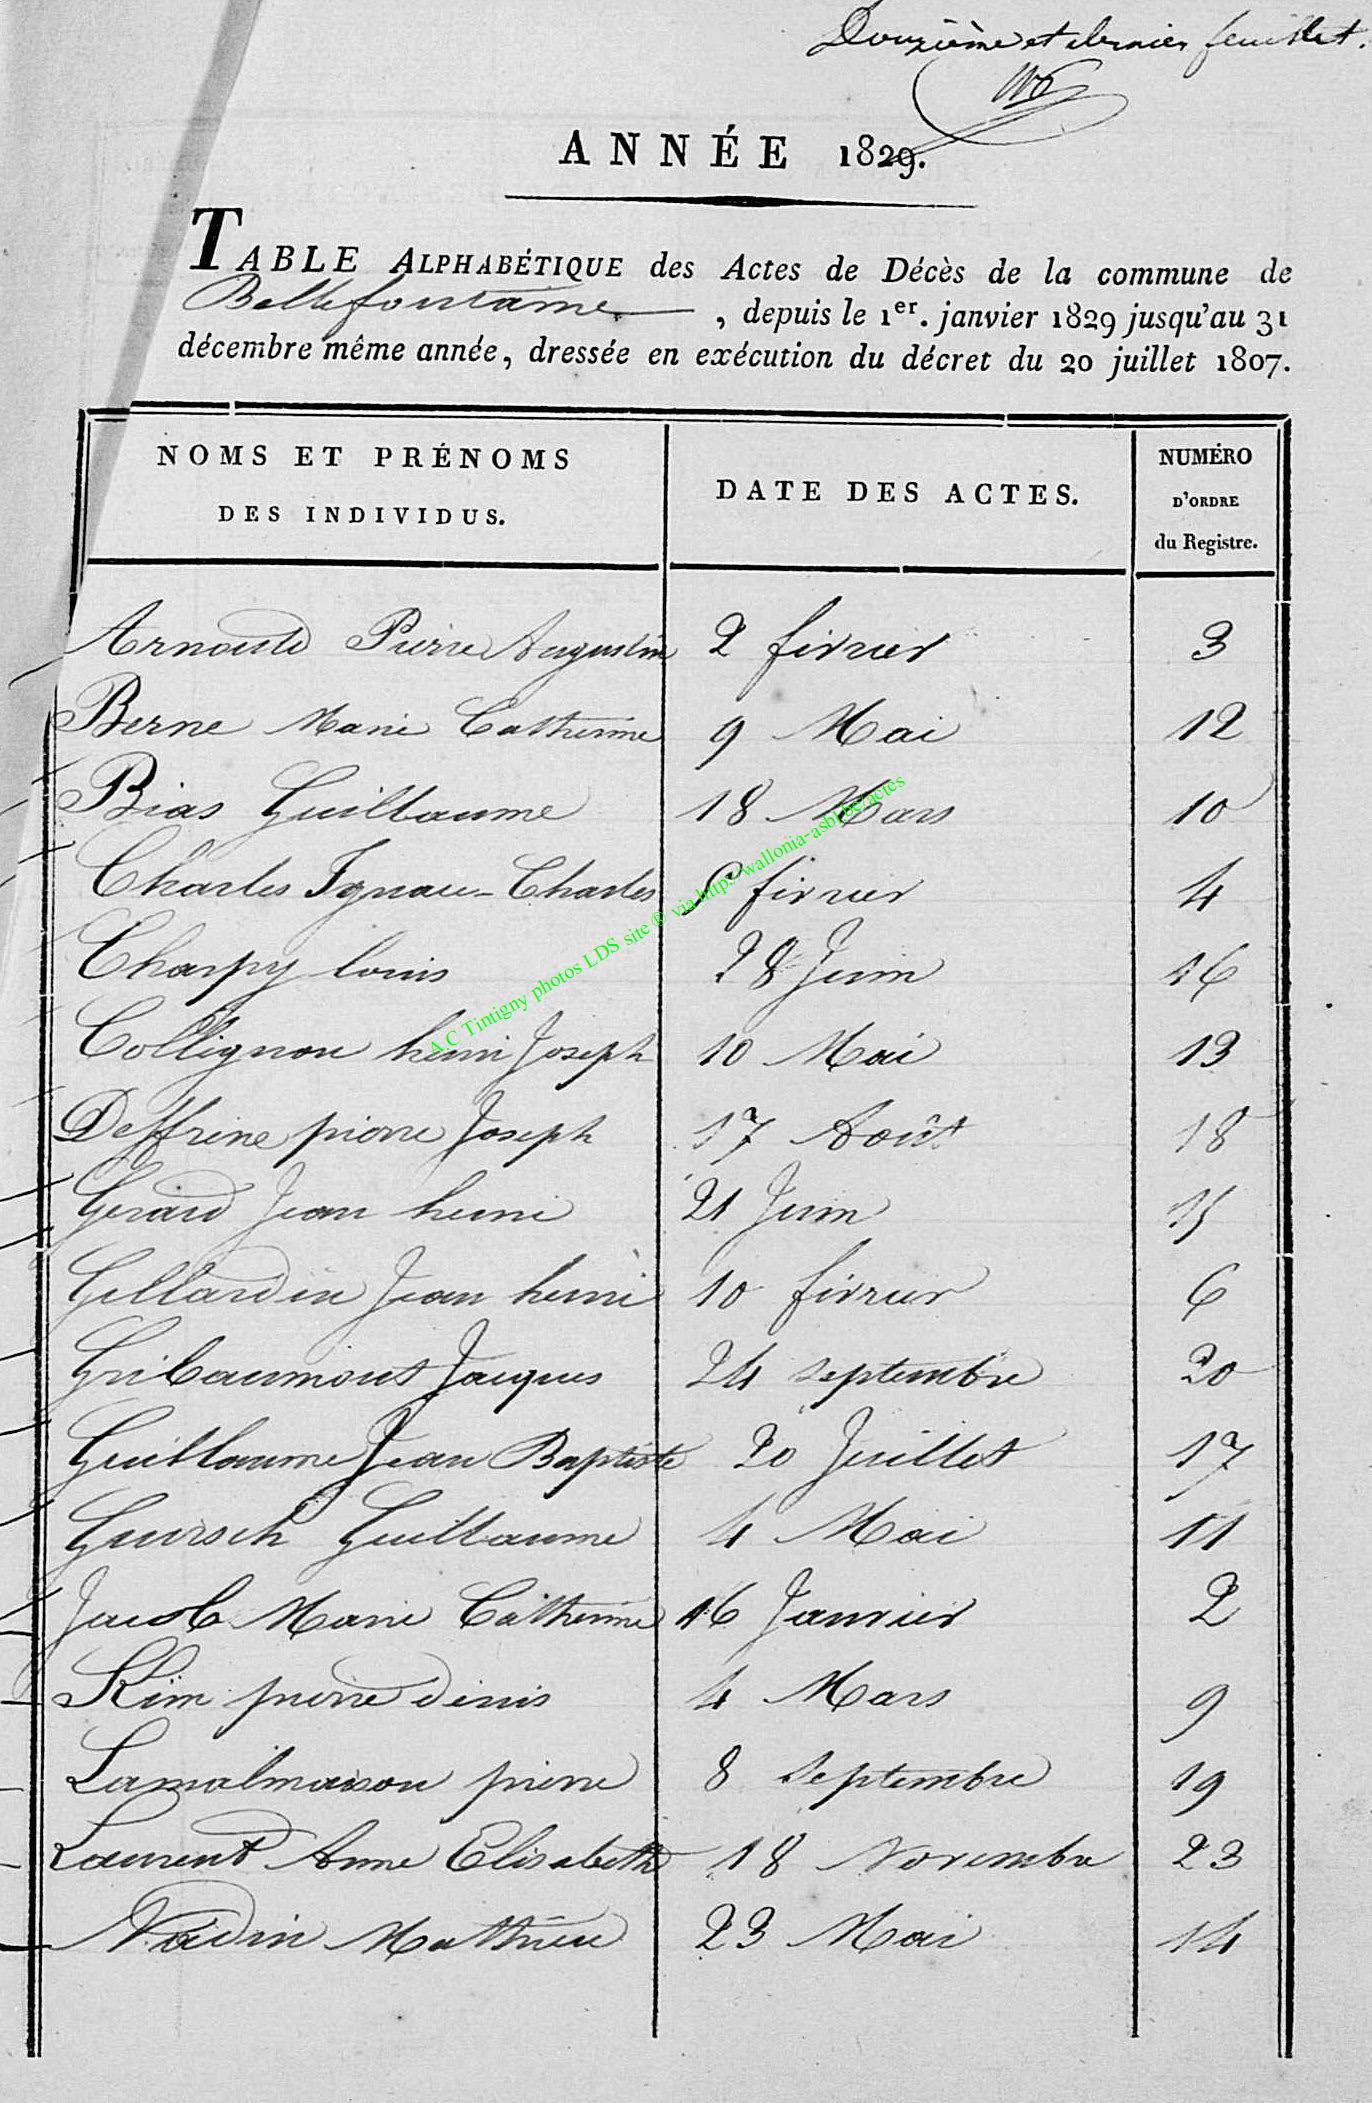 Douzième et dernier feuillet.
ANNÉE 1829.
TABLE ALPHABÉTIQUE des Actes de Décès de la commune de
Bellefontaine, depuis le 1er. janvier 1829 jusqu'au 31
décembre même année, dressée en exécution du décret du 20 juillet 1807.
NOMS ET PRÉNOMS DES INDIVIDUS. DATE DES ACTES. NUMÉRO D'ORDRE du Registre.
Arnould Pierre Augustin 2 février 3
Berne Marie Catherine 9 Mai 12
Bias Guillaume 18 Mars 10
Charles Ignace-Charles 5 février 4
Charpy louis 28 Juin 16
Collignon henri Joseph 10 Mai 13
Deffrene pierre Joseph 17 Août 18
Gerard Jean henri 21 Juin 15
Gillardin Jean henri 10 février 6
Gribaumont Jacques 24 septembre 20
Guillaume Jean Baptiste 20 Juillet 17
Guirsch Guillaume 4 Mai 11
Jacob Marie Catherine 16 Janvier 2
Kim pierre denis 4 Mars 9
Lamalmaison pierre 8 septembre 19
Laurent Anne Elisabeth 18 Novembre 23
Nadin Mathieu 23 Mai 14
A.C Tintigny photos LDS site ® via http://wallonia-asbl.be/actes